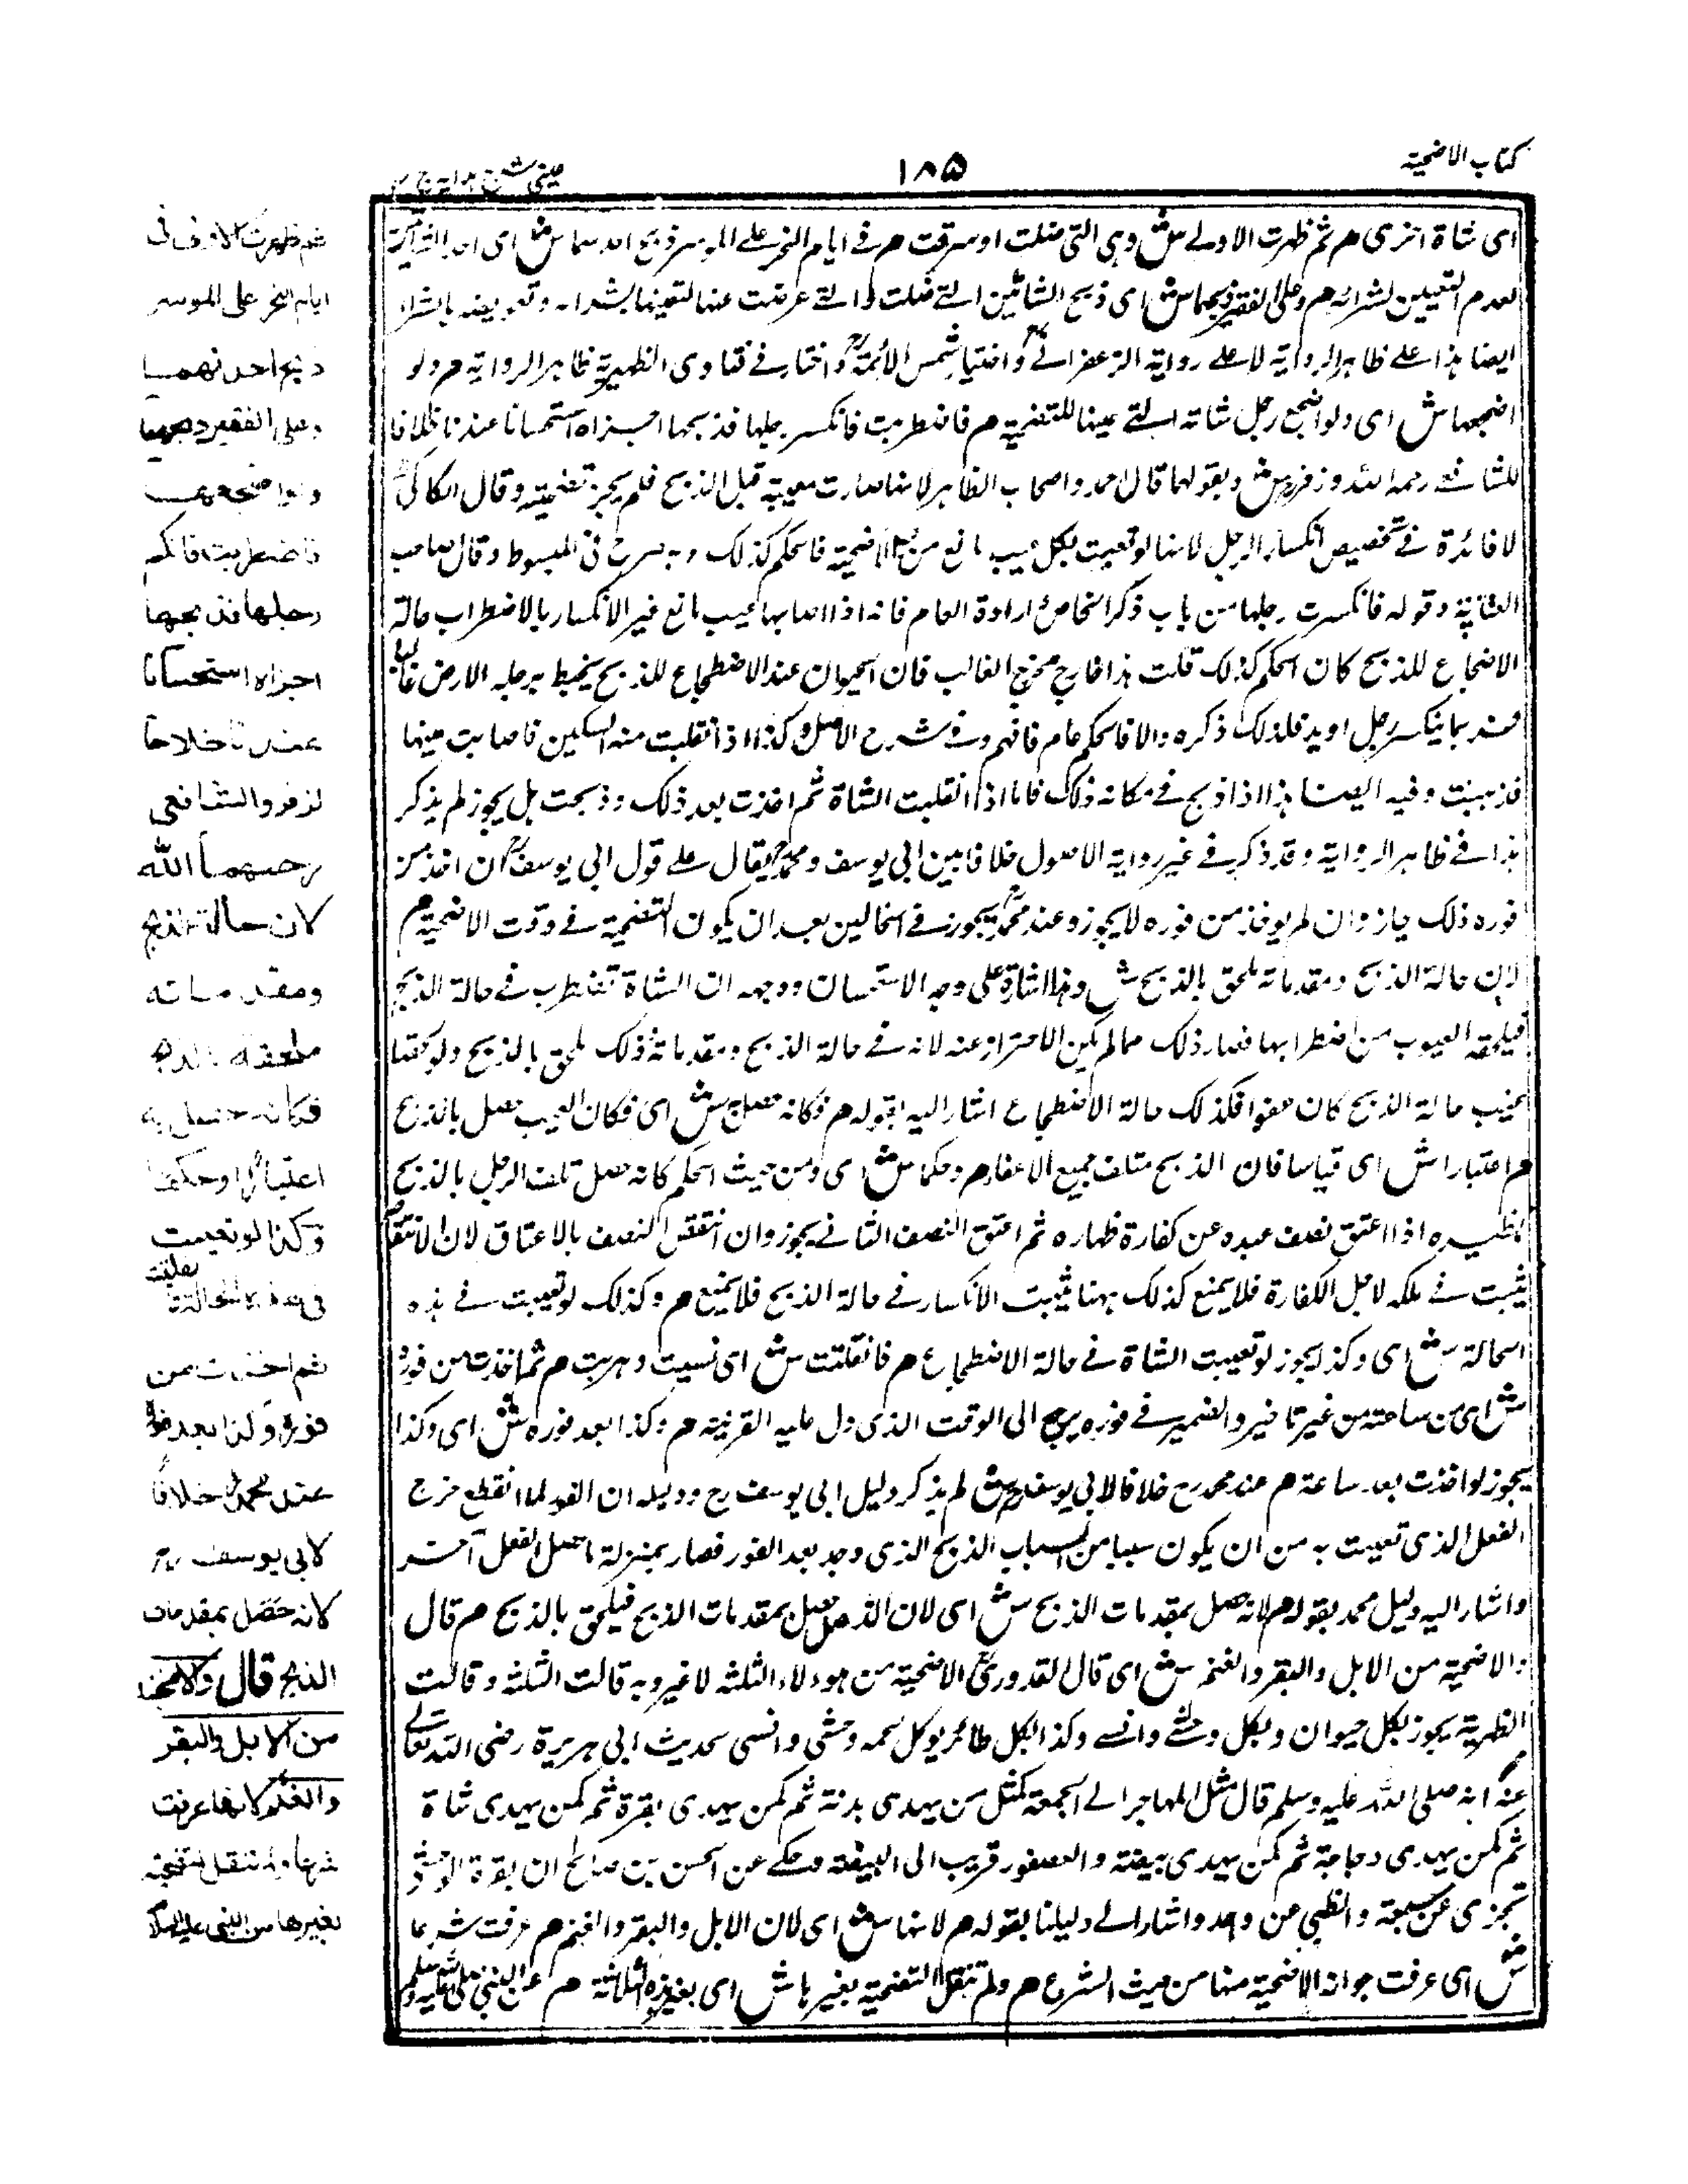 كتاب الاضحية
١٨٥
عينى شرح هداية ج
اى شاة اخرى هم ثم ظهرت الاولے ش وہى التى ضلت او سرقت م فے ايام النحر علے الموسر ذبح احدہما ش اى احد الشاتين
لعدم التعيين لشرائہ م وعلى الفقير ذبحہما ش اى ذبح الشاتين التے ضلت والتے عرضت عنہا لتعينہا بالشراء وتعويضہ بالشراء
ايضا ہذا علے ظاہر الرواية لا علے رواية الزعفرانے واختيار شمس الأئمة واختار فے فتاوى الظہيرية ظاہر الرواية م ولو
اضجعہا ش اى ولو اضجع رجل شاتہ التے عينہا للتضحية م فاضطربت فانكسر رجلہا فذبحہا اجزاہ استحسانا عندنا خلافا
للشافعے رحمہ اللہ وزفر ش وبقولہما قال احمد واصحاب الظاہر لانہا صارت معيبة قبل الذبح فلم يجز تضحيتہ وقال الكاكى
لا فائدة فے تخصيص انكسار الرجل لانہا لو تعيبت بكل عيب مانع من الاضحية فالحكم كذلك وبہ صرح فى المبسوط وقال صاحب
العناية وقولہ فانكسرت رجلہا من باب ذكر الخاص و ارادة العام فانہ اذا اصابہا عيب مانع غير الانكسار بالاضطراب حالة
الاضجاع للذبح كان الحكم كذلك قلت ہذا خارج مخرج الغالب فان الحيوان عند الاضطجاع للذبح يخبط برجلہ الارض غالبا
فربما ينكسر رجل او يد فلذلك ذكرہ والا فالحكم عام فافہم وفے شرح الاصل وكذا اذا انقلبت منہ السكين فاصابت عينہا
فذہبت وفيہ ايضا ہذا اذا ذبح فے مكانہ ذلك فاما اذا انقلبت الشاة ثم اخذت بعد ذلك وذبحت ہل يجوز لم يذكر
ہذا فے ظاہر الرواية وقد ذكر فے غير رواية الاصول خلافا بين ابى يوسف ومحمد يقال علے قول ابى يوسف ان اخذ من
فورہ ذلك جاز وان لم يوخذ من فورہ لا يجوز وعند محمد يجوز فے الحالين بعد ان يكون التضحية فے وقت الاضحية م
لان حالة الذبح ومقدماتہ ملحق بالذبح ش وہذا اشارة على وجہ الاستحسان ووجہہ ان الشاة تضطرب فے حالة الذبح
فيلحقہ العيوب من اضطرابہا فصار ذلك مما لم يمكن الاحتراز عنہ لانہ فے حالة الذبح ومقدماتہ ذلك ملحق بالذبح ولو لحقہا
عيب حالة الذبح كان عفوا فكذلك حالة الاضطجاع اشار اليہ بقولہ م فكانہ حصل بہ ش اى فكان العيب حصل بالذبح
م اعتبارا ش اى قياسا فان الذبح متلف جميع الاعضاء م وحكما ش اى ومن حيث الحكم كانہ حصل تلف الرجل بالذبح
نظيرہ اذا اعتق نصف عبدہ عن كفارة ظہارہ ثم اعتق النصف الثانے يجوز وان انتقض النصف بالاعتاق لان الانتقاص
يثبت فے ملكہ لاجل الكفارة فلا يمنع كذلك ہہنا يثبت الانكسار فے حالة الذبح فلا يمنع م وكذلك لو تعيبت فے ہذہ
الحالة ش اى وكذا يجوز لو تعيبت الشاة فے حالة الاضطجاع م فانفلتت ش اى نسيبت وہربت م ثم اخذت من فورہ
ش اى من ساعتہ من غير تاخير والضمير فے فورہ يرجع الى الوقت الذى دل عليہ القرينة م وكذا بعد فورہ ش اى وكذا
يجوز لو اخذت بعد ساعة م عند محمد رح خلافا لابى يوسف رح ش لم يذكر دليل ابى يوسف رح ودليلہ ان الفور لما انقطع خرج
الفعل الذى تعيبت بہ من ان يكون سببا من اسباب الذبح الذى وجد بعد الفور فصار بمنزلة ما حصل بفعل آخر
واشار اليہ دليل محمد بقولہ م لانہ حصل بمقدمات الذبح ش اى لان الذ حصل بمقدمات الذبح فيلحق بالذبح م قال
والاضحية من الابل والبقر والغنم ش اى قال القدورى الاضحية من ہوءلاء الثلثہ لا غير وبہ قالت الثلثہ وقالت
الظہرية يجوز بكل حيوان وبكل وحشے وانسے وكذا بكل طائر يوكل لحمہ وحشى وانسى لحديث ابى ہريرة رضى اللہ تعالے
عنہ انہ صلى اللہ عليہ وسلم قال مثل المہاجر الے الجمعة كمثل من يہدى بدنة ثم كمن يہدى بقرة ثم كمن يہدى شاة
ثم كمن يہدى دجاجة ثم كمن يہدى بيضة والعصفور قريب الى البيضة وحكے عن الحسن بن صالح ان بقرة الوحش
تجزى عن سبعة والظبى عن واحد واشار الے دليلنا بقولہ م لانہا ش اى لان الابل والبقر والغنم م عرفت شرعا
ش اى عرفت جواز الاضحية منہا من حيث الشرع م ولم تنقل التضحية بغيرہا ش اى بغير ہذہ الثلاثة م عن النبى صلى اللہ عليہ وسلم
ثم ظهرت الاولى فى
ايام النحر على الموسر
ذبح احدٰهما
وعلى الفقير ذبحهما
ولو اضجعها
فاضطربت فانكسر
رجلها فذبحها
اجزاه استحسانا
عندنا خلافا
لزفر والشافعى
رحمهما الله
لان حالة الذبح
ومقدماته
ملحقة بالذبح
فكانه حصل به
اعتبارا وحكما
وكذا لو تعيبت
فى هذه الحالة فانفلتت
ثم اخذت من
فوره وكذا بعد فوره
عند محمد خلافا
لابى يوسف رح
لانه حصل بمقدمات
الذبح قال والاضحية
من الابل والبقر
والغنم لانها عرفت
شرعا ولم تنقل التضحية
بغيرها من النبى عليه السلام